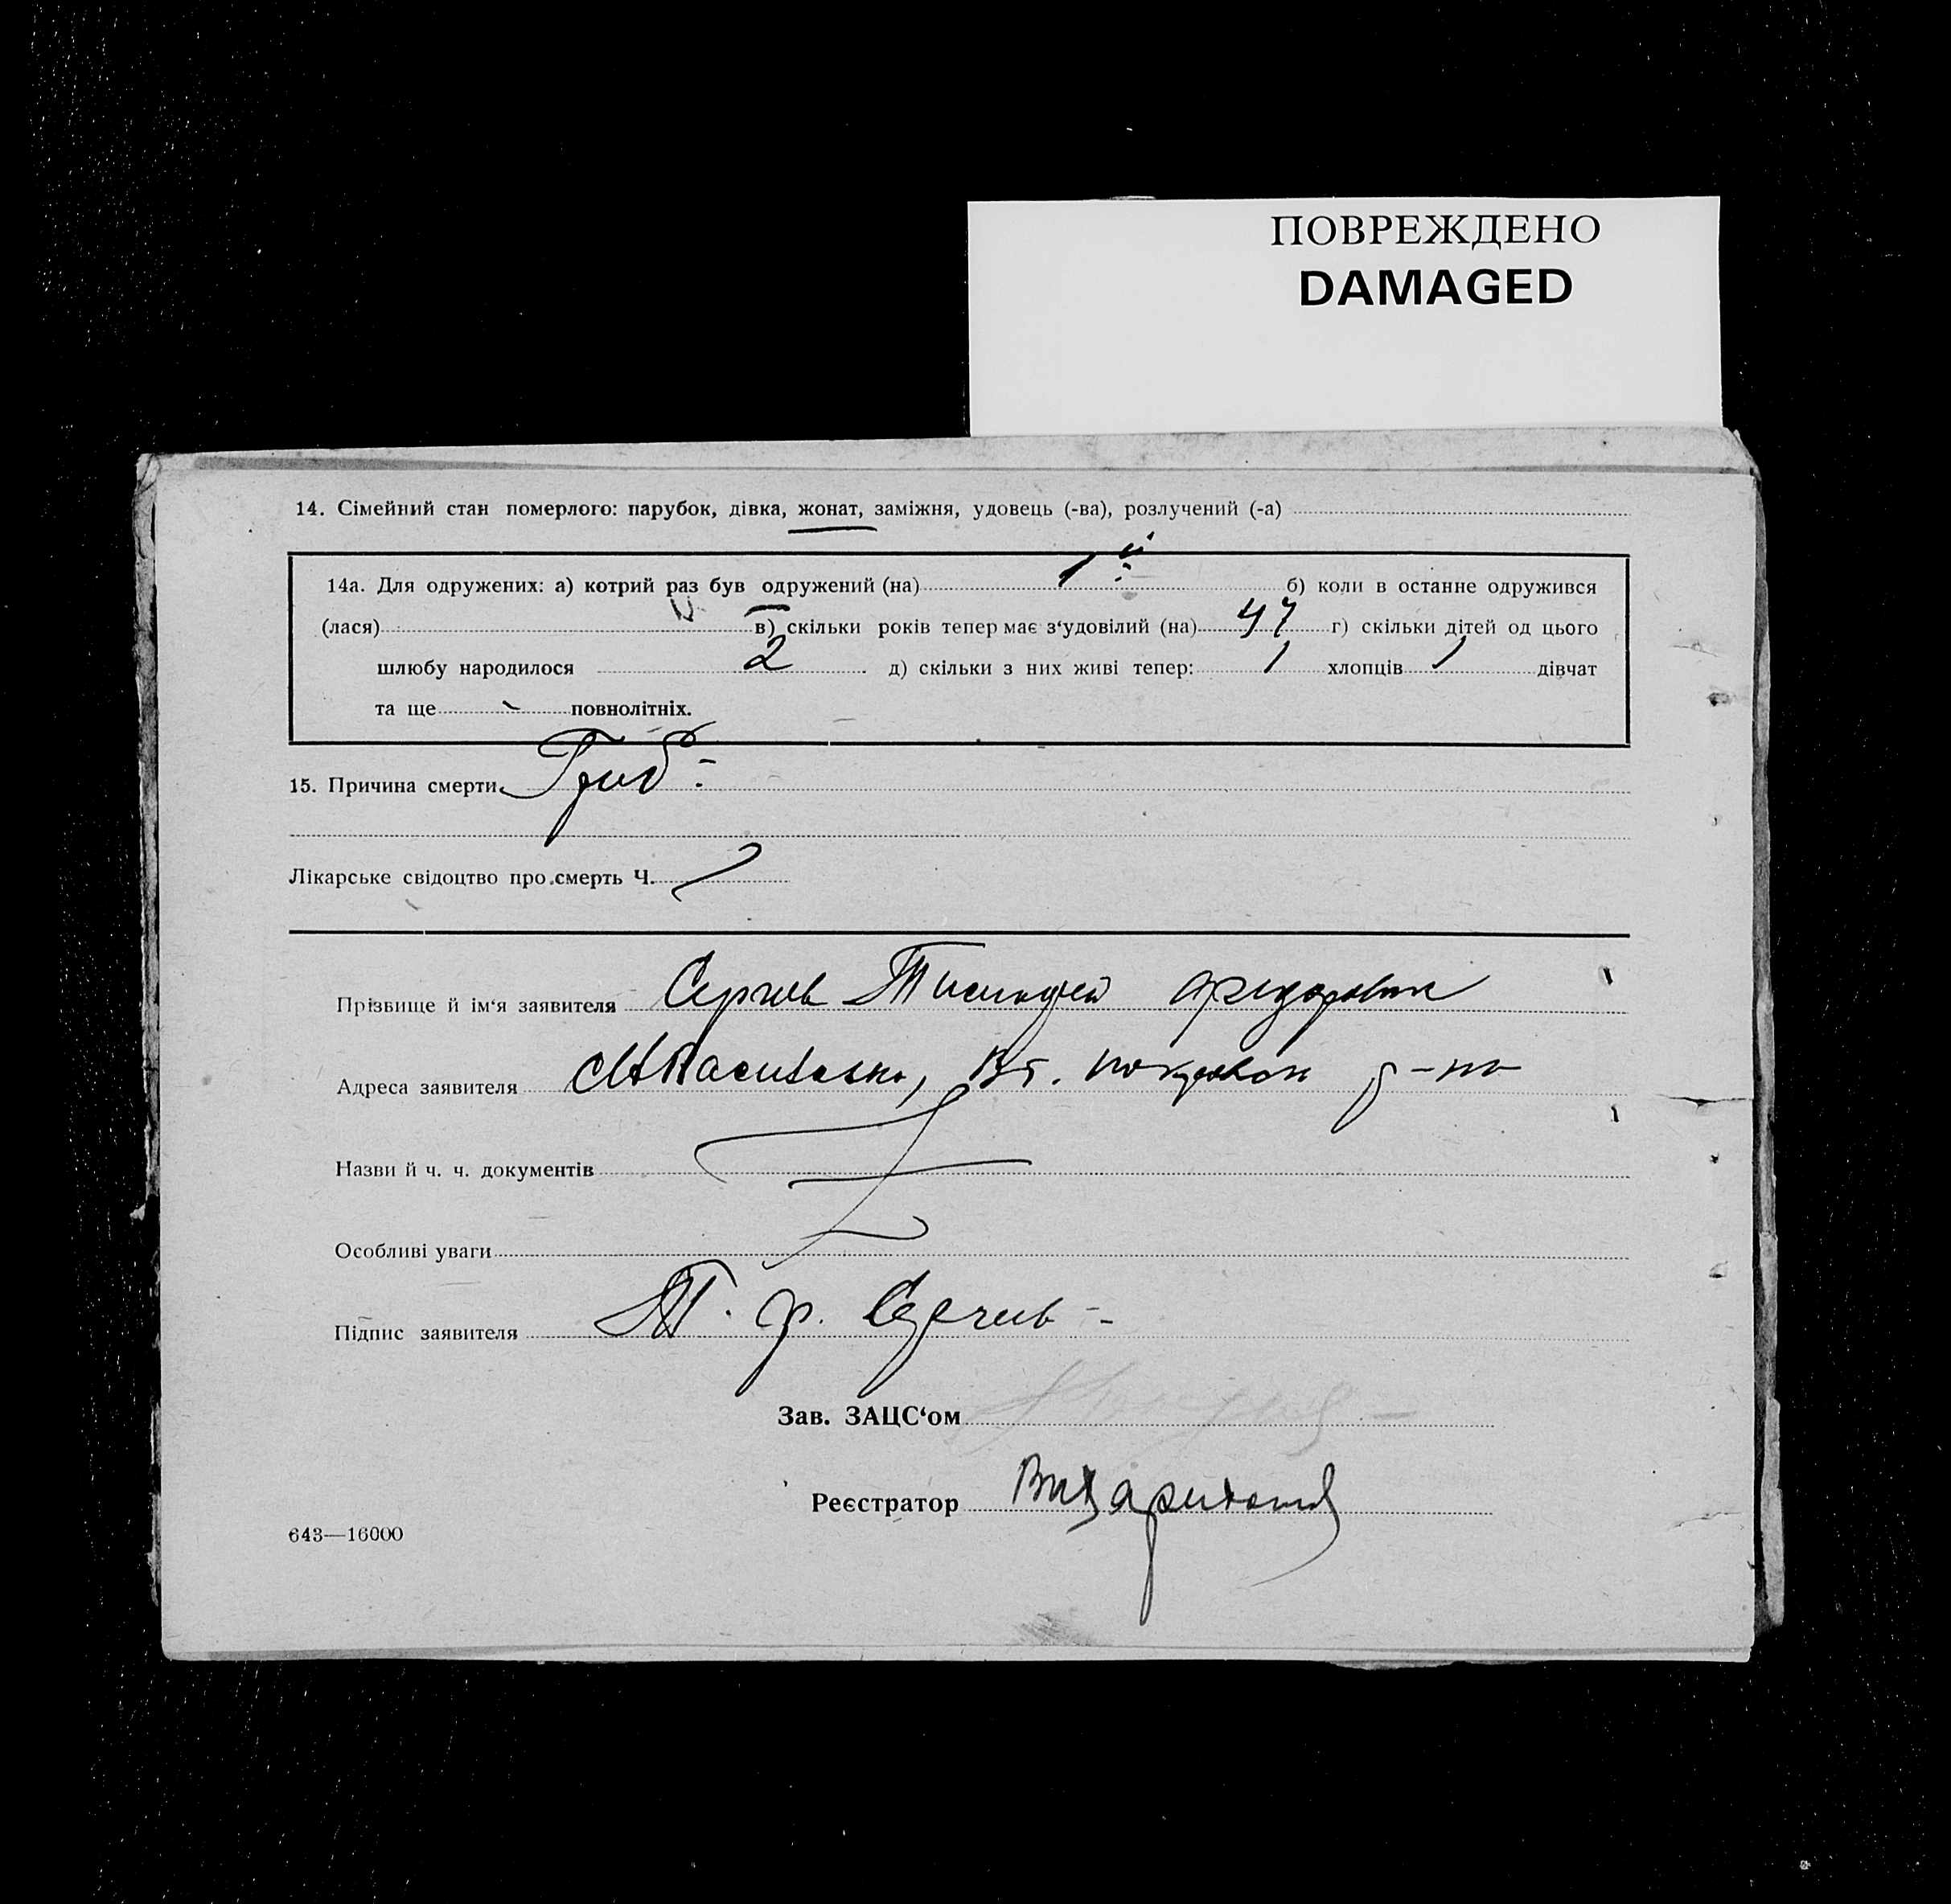 ПОВРЕЖДЕНО
DAMAGED
14. Сімейний стан померлого: парубок, дівка, жонат, заміжня, удовець (-ва), розлучений (-а)
14а. Для одружених: а) котрий раз був одружений (на) 1й б) коли в останне одружився
(лася) в) скільки років тепер має з‘удовілий (на) 47 г) скільки дітей од цього
шлюбу народилося 2 д) скільки з них живі тепер: 1 хлопців 1 дівчат
та ще - повнолітніх.
15. Причина смерти Гриб
Лікарське свідоцтво про смерть Ч.
Прізвище й ім‘я заявителя Сергиев Тимофей Федорович
Адреса заявителя р-на
Назви й ч. ч. документів
Особливі уваги
Підпис заявителя Т. Ф. Сергиев
Зав. ЗАЦС‘ом
Реєстратор
643—16000